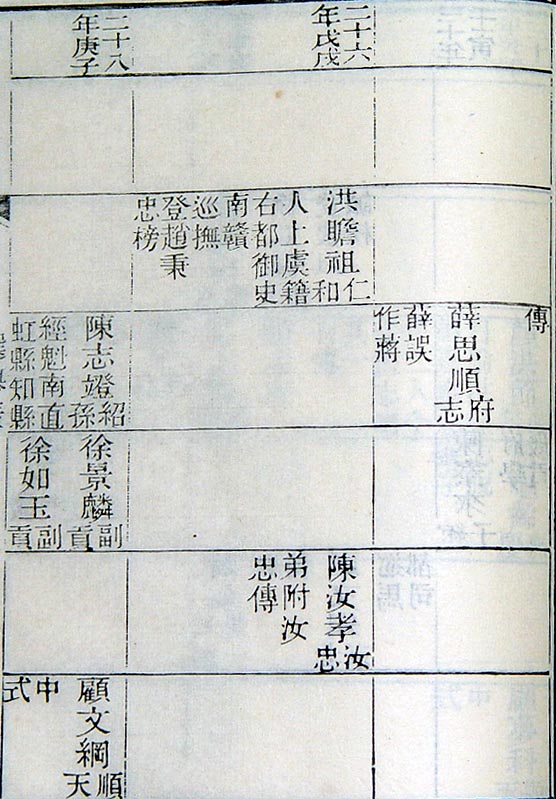 二十六
年戊戌
二十八
年庚子
洪瞻祖仁和
人上虞籍
右都御史
南贛
巡撫
登趙秉
忠榜
傳
薛思順府志
薛誤
作蔣
陳志竳紹孫
經魁南直
虹縣知縣
徐景麟副貢
徐如玉副貢
陳汝孝汝忠
弟附汝
忠傳
顧文綱順天
中式